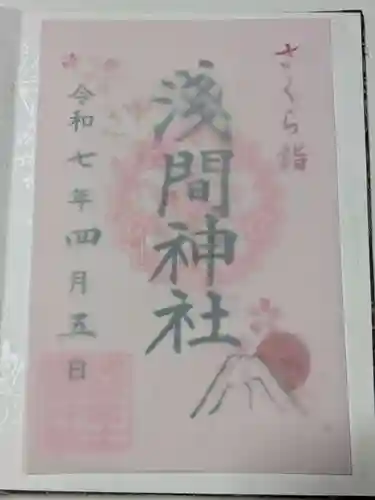 さくら詣
淺間神社
令和七年四月五日